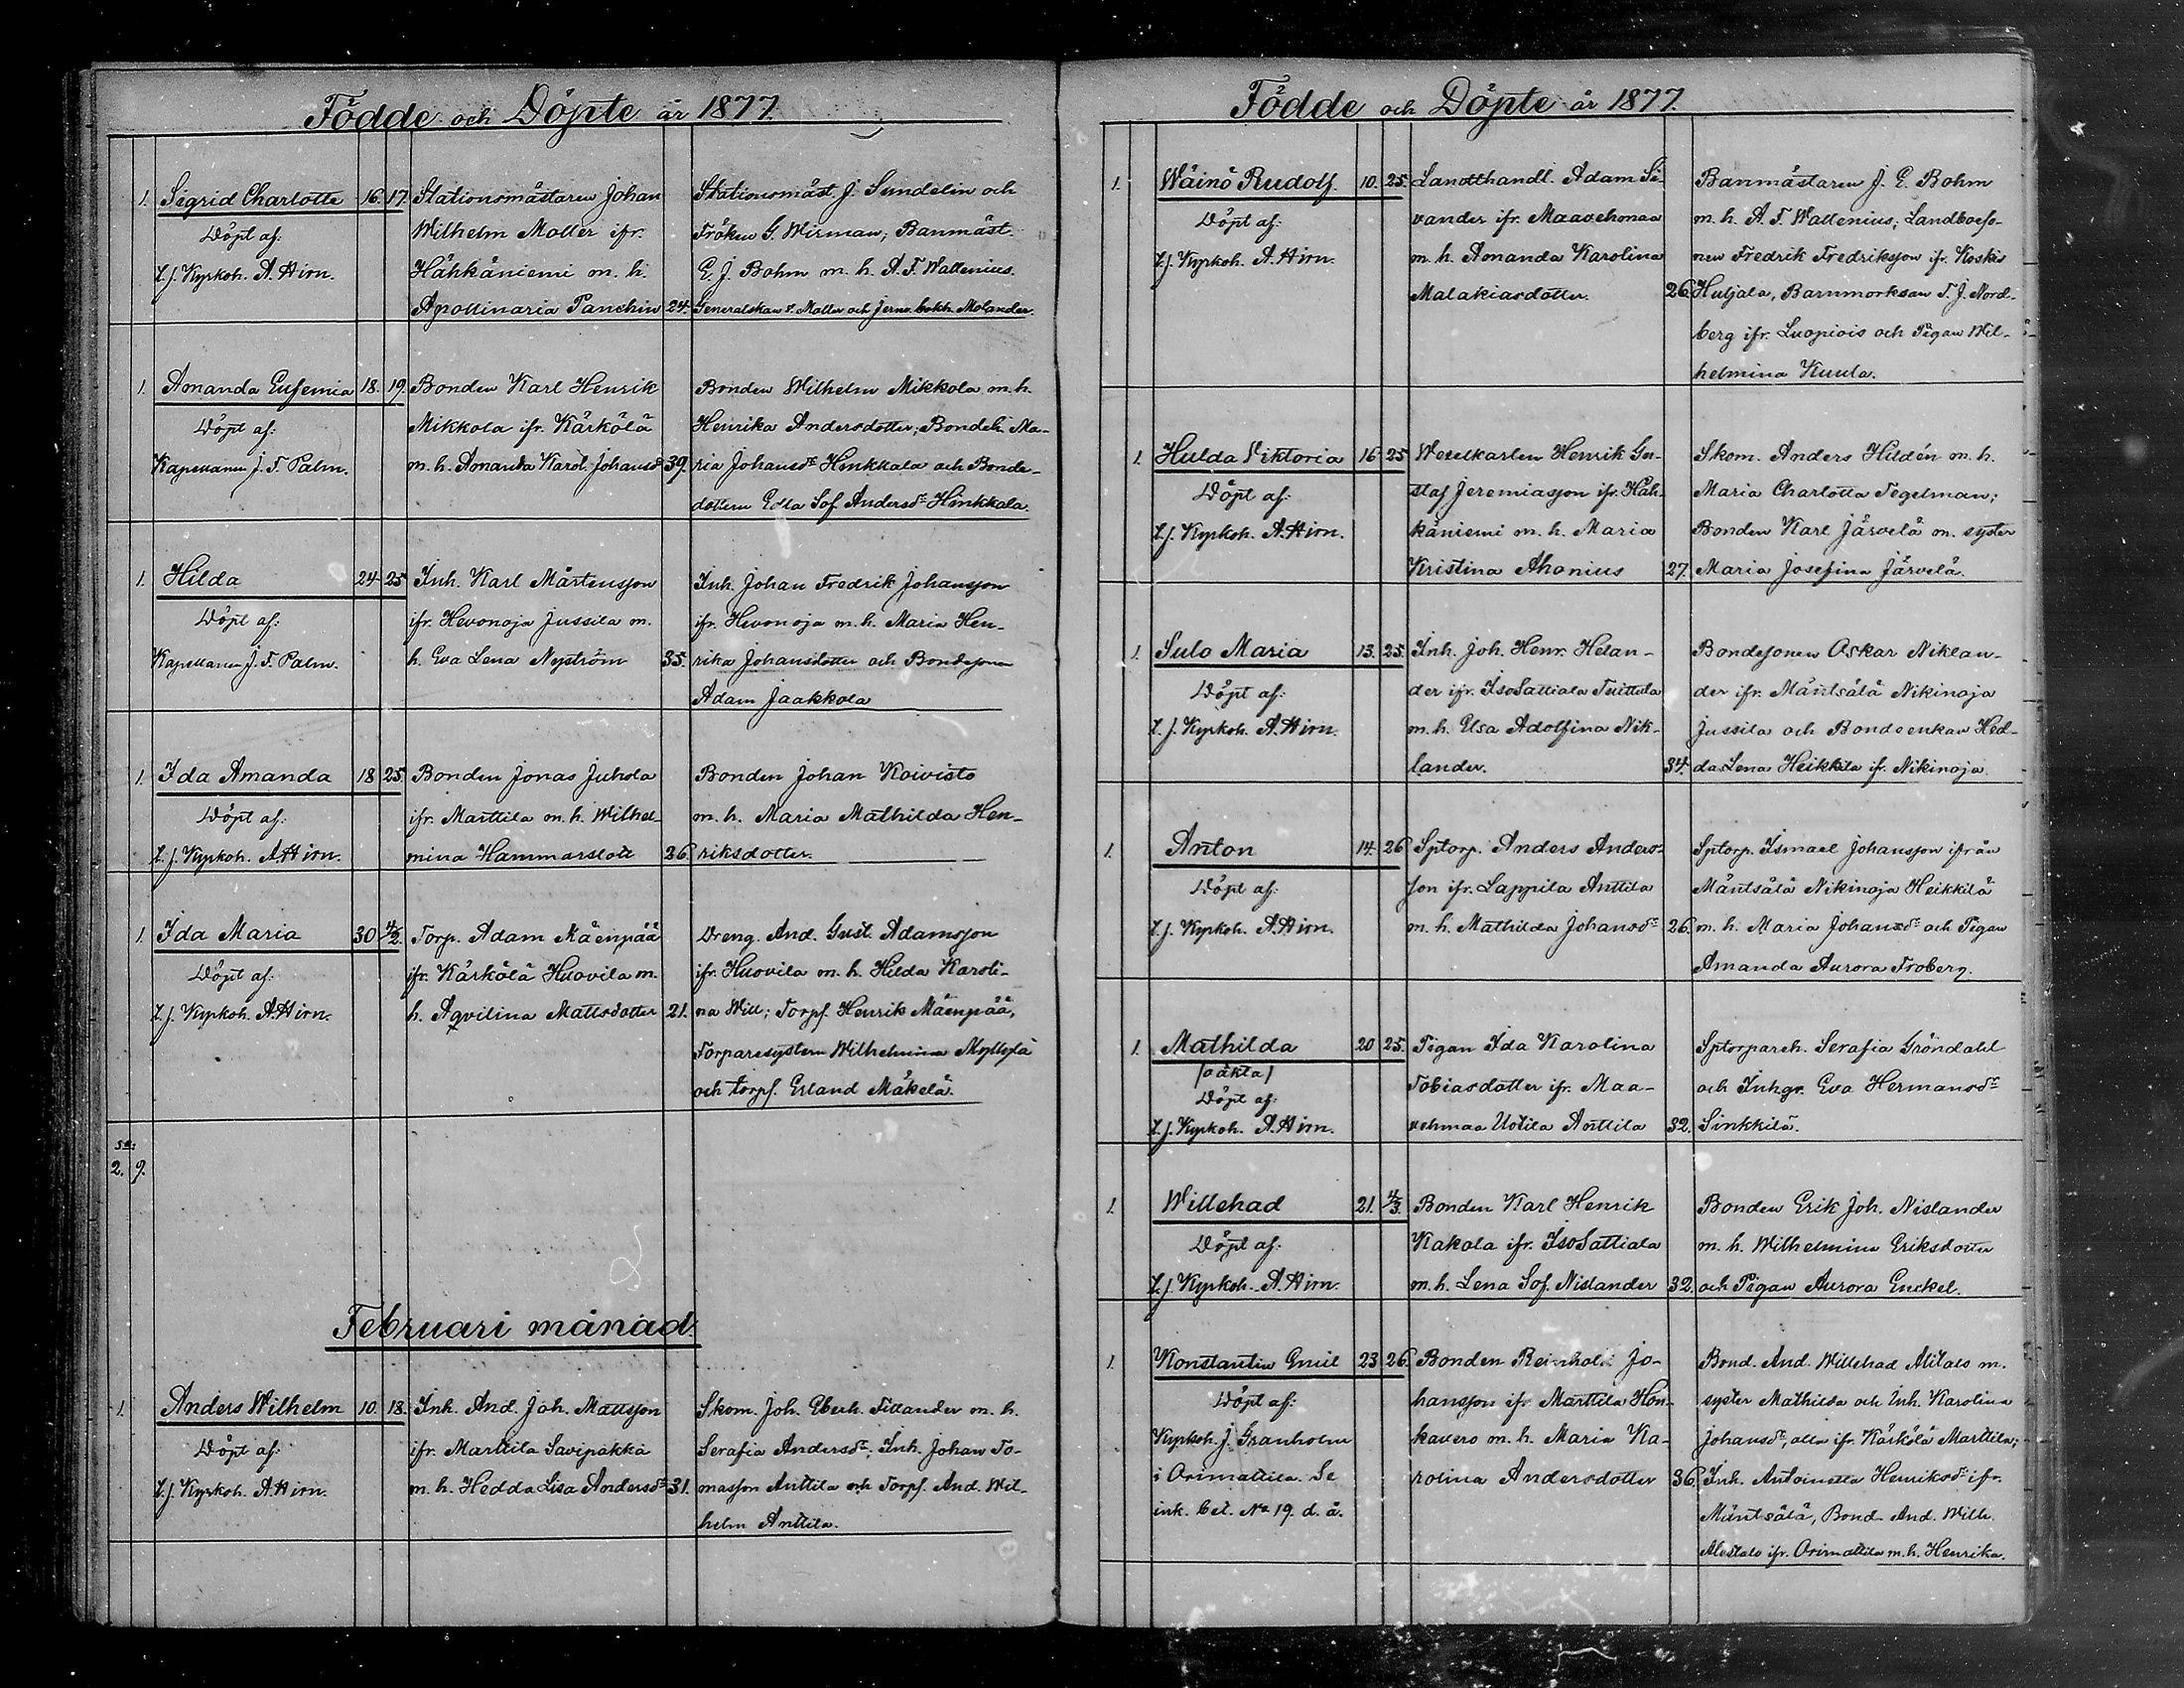 Födde och Döpte år 1877.
1. Sigrid Charlotte 16. 17. Stationsmästaren Johan Stationsmäst. J. Sundelin och
Döpt af: Wilhelm Moller ifr. Fröken G. Wirman; Banmäst.
t.f. Kyrkoh. A. Hirn. Hähkäniemi m. h. E J. Bohm m. h. A. F. Wattenius.
Apollinaria Panchin 24. Generalskan S. Moller och Jernv. bokh. Molander.
1. Amanda Eufemia 18. 19. Bonden Karl Henrik Bonden Wilhelm Mikkola m. h.
Döpt af: Mikkola ifr. Kärkölä Henrika Andersdotter; Bondeh. Ma-
Kapellanen J. F. Palm. m. h. Amanda Karol. Johansdr 39. ria Johansdr Hinkkala och Bonde-
dottern Edla Sof. Andersdr Hinkkala.
1. Hilda 24 25 Inh. Karl Mårtensson Inh. Johan Fredrik Johansson
Döpt af: ifr. Hevonoja Jussila m. ifr. Hevonoja m. h. Maria Hen-
Kapellanen J. F. Palm. h. Eva Lena Nyström 35. rika Johansdotter och Bondesonen
Adam Jaakkola
1. Ida Amanda 18 25. Bonden Jonas Juhola Bonden Johan Koivisto
Döpt af: ifr. Marttila m. h. Wilhel- m. h. Maria Mathilda Hen-
t.f. Kyrkoh. A Hirn. mina Hammarslott 26. riksdotter.
1. Ida Maria 30 4/2. Torp. Adam Mäenpää Dreng. And. Gust. Adamsson
Döpt af: ifr. Kärkölä Huovila m. ifr. Huovila m. h. Hilda Karoli-
t.f. Kyrkoh. A. Hirn. h. Aqvilina Mattsdotter 21. na Will; Torpf. Henrik Mäenpää,
Torparesystern Wilhelmina Myllylä
och torpf. Erland Mäkelä.
Sa:
2. 9.
Februari månad.
1. Anders Wilhelm 10. 18. Inh. And. Joh. Mattsson Skom. Joh. Eberh. Fillander m. h.
Döpt af: ifr. Marttila Savipakka Serafia Andersdr; Inh. Johan To-
t.f. Kyrkoh. A. Hirn. m. h. Hedda Lisa Andersdr 31. masson Anttila och Torpf. And. Wil-
helm Anttila.
Födde och Döpte år 1877.
1. Wäinö Rudolf. 10. 25. Landthandl. Adam Si- Banmästaren J. E. Bohm
Döpt af: vander ifr. Maavehmaa m. h. A. F. Wattenius; Landboeso-
t.f. Kyrkoh. A. Hirn. m. h. Amanda Karolina nen Fredrik Fredriksson ifr. Koskis
Malakiasdotter. 26. Huljala, Barnmorskan F. J. Nord-
berg ifr. Luopiois och Pigan Wil-
helmina Kuula.
1. Hulda Viktoria 16 25 Wexelkarlen Henrik Gu- Skom. Anders Hildén m. h.
Döpt af: staf Jeremiasson ifr. Häh- Maria Charlotta Tegelman;
t.f. Kyrkoh. A. Hirn. käniemi m. h. Maria Bonden Karl Järvelä m. syster
Kristina Ahonius 27. Maria Josefina Järvelä.
1. Sulo Maria 13. 25. Inh. Joh. Henr. Helan- Bondesonen Oskar Niklan-
Döpt af: der ifr. IsoSattiala Tuittula der ifr. Mäntsälä Nikinoja
t.f. Kyrkoh. A. Hirn. m. h. Elsa Adolfina Nik- Jussila och Bondeenkan Hed-
lander. 34. da Lena Heikkilä if. Nikinoja.
1. Anton 14. 26 Sptorp. Anders Anders- Sptorp. Ismael Johansson ifrån
Döpt af: son ifr. Lappila Anttila Mäntsälä Nikinoja Heikkilä
t.f. Kyrkoh. A. Hirn. m. h. Mathilda Johansdr 26. m. h. Maria Johansdr och Pigan
Amanda Aurora Froberg.
1. Mathilda 20 25. Pigan Ida Karolina Sptorpareh. Serafia Gröndahl
(oäkta) Tobiasdotter ifr. Maa- och Inhgr. Eva Hermansdr
Döpt af:
t.f. Kyrkoh. A. Hirn. vehmaa Uotila Anttila 32. Sinkkila.
1. Willehad 21. 4/3. Bonden Karl Henrik Bonden Erik Joh. Nislander
Döpt af: Kakola ifr. IsoSattiala m. h. Wilhelmina Eriksdotter
t.f. Kyrkoh. A. Hirn. m. h. Lena Sof. Nislander 32. och Pigan Aurora Enckel.
1. Konstantin Emil 23 26. Bonden Reinhold Jo- Bond. And. Willehad Alitalo m.
Döpt af: hansson ifr. Marttila Hon- syster Mathilda och Inh. Karolina
Kyrkoh. J. Granholm kavero m. h. Maria Ka- Johansdr, alla ifr. Kärkölä Marttila;
i Orimattila. Se rolina Andersdotter 36. Inh. Antoinetta Henriksdr ifr.
ink. bet. No 19. d. å. Mäntsälä, Bond. And. Wilh.
Alestalo ifr. Orimattila m. h. Henrika.